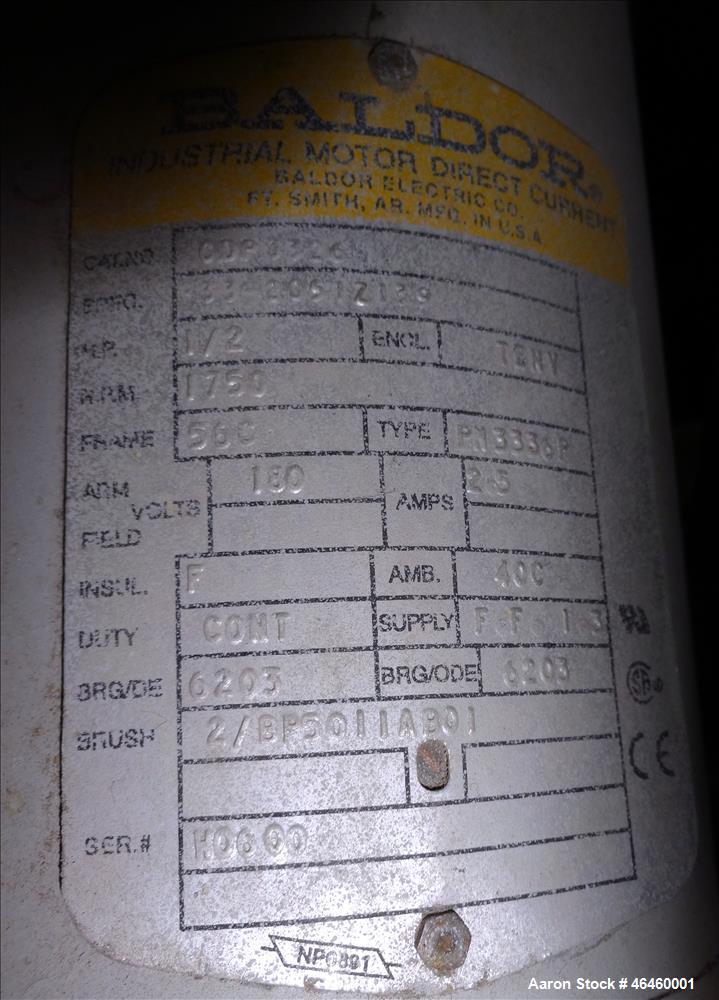 BALDOR®
INDUSTRIAL MOTOR DIRECT CURRENT
BALDOR ELECTRIC CO.
FT. SMITH, AR. MFG. IN U.S.A.
CAT.NO. CDP3326
SPEC. 33-2061Z139
H.P. 1/2 ENCL. TENV
R.P.M 1750
FRAME 56C TYPE PM3336P
ARM VOLTS 180 AMPS 2.5
FIELD
INSUL. F AMB. 40C
DUTY CONT SUPPLY F.F. 1.3
BRG/DE 6203 BRG/ODE 6203
BRUSH 2/BP5011AB01
CE
SER.# H0600
NP0891
Aaron Stock # 46460001